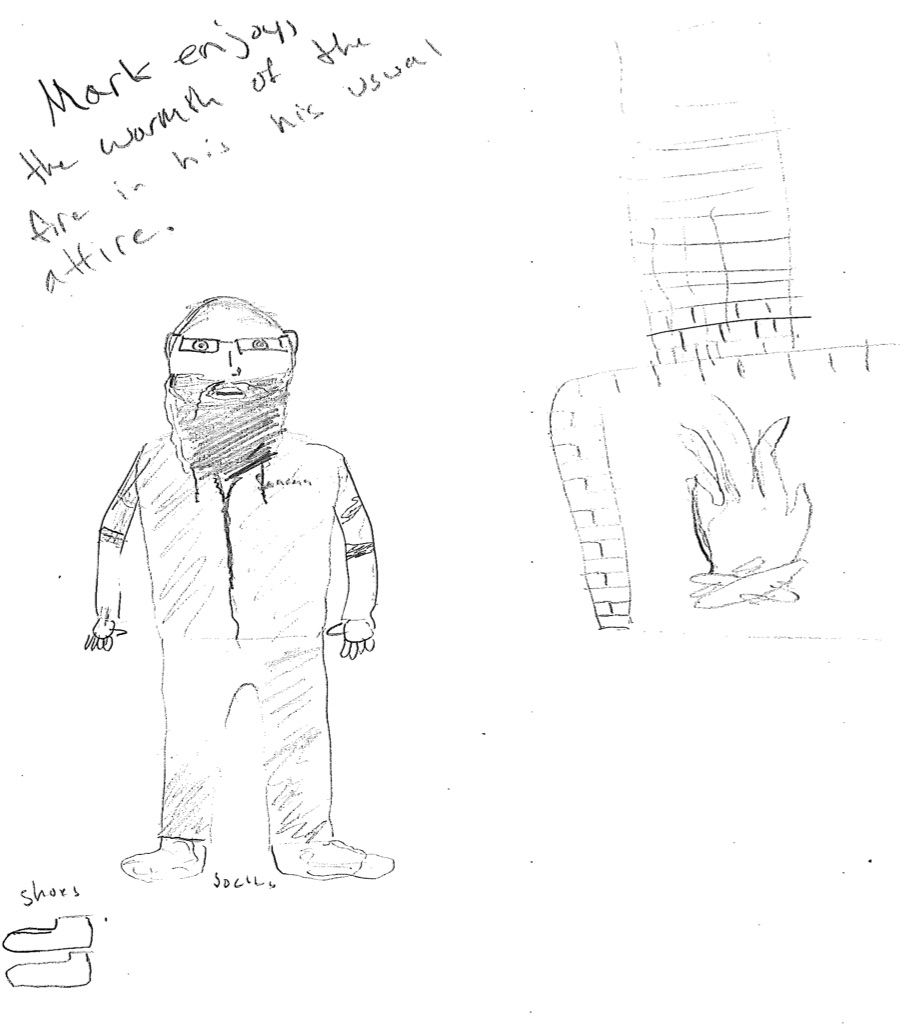 Mark enjoys
the warmth of the
fire in his his usual
attire.
socks
shoes